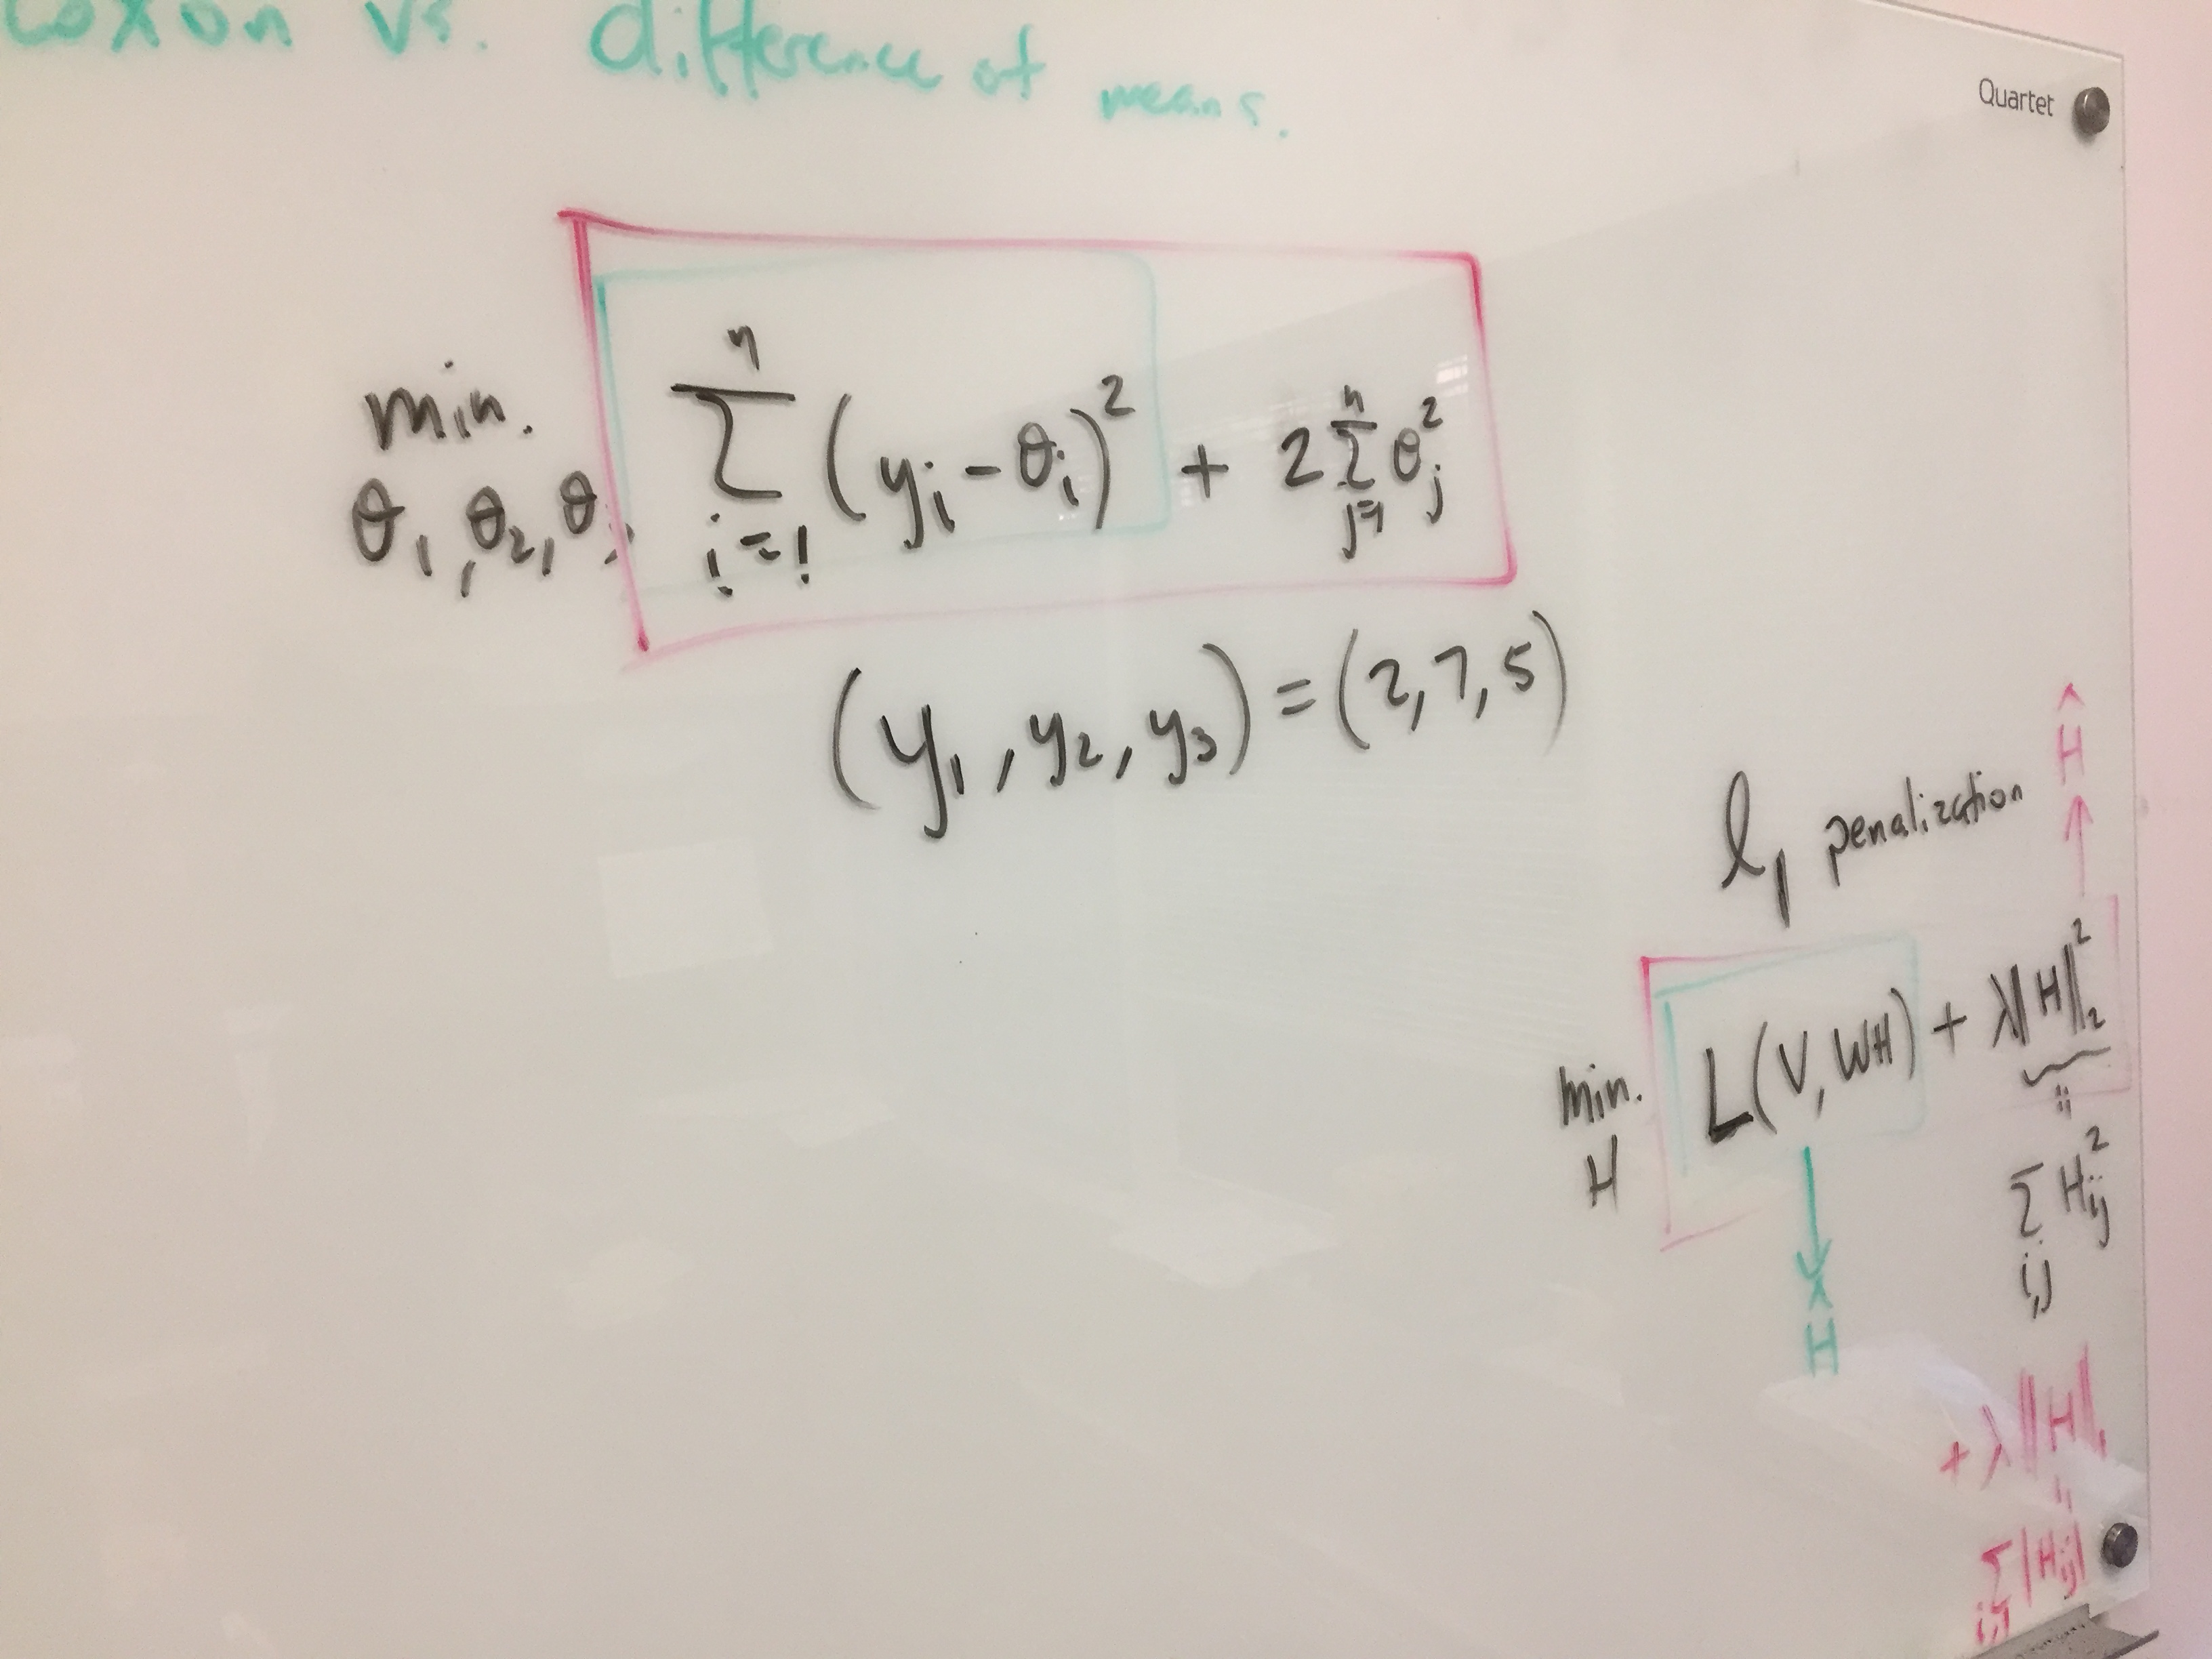 vs. difference of means.
Quartet
min. θ₁, θ₂, θ₃
n Σ i=1 (yᵢ - θᵢ)² + 2 n Σ j=1 θⱼ²
(y₁, y₂, y₃) = (2, 7, 5)
Ĥ
ℓ₁ penalization
min. H L(V, WH) + λ‖H‖₂²
Σ i,j Hᵢⱼ²
Ĥ
+ λ‖H‖₁
Σ i,j |Hᵢⱼ|